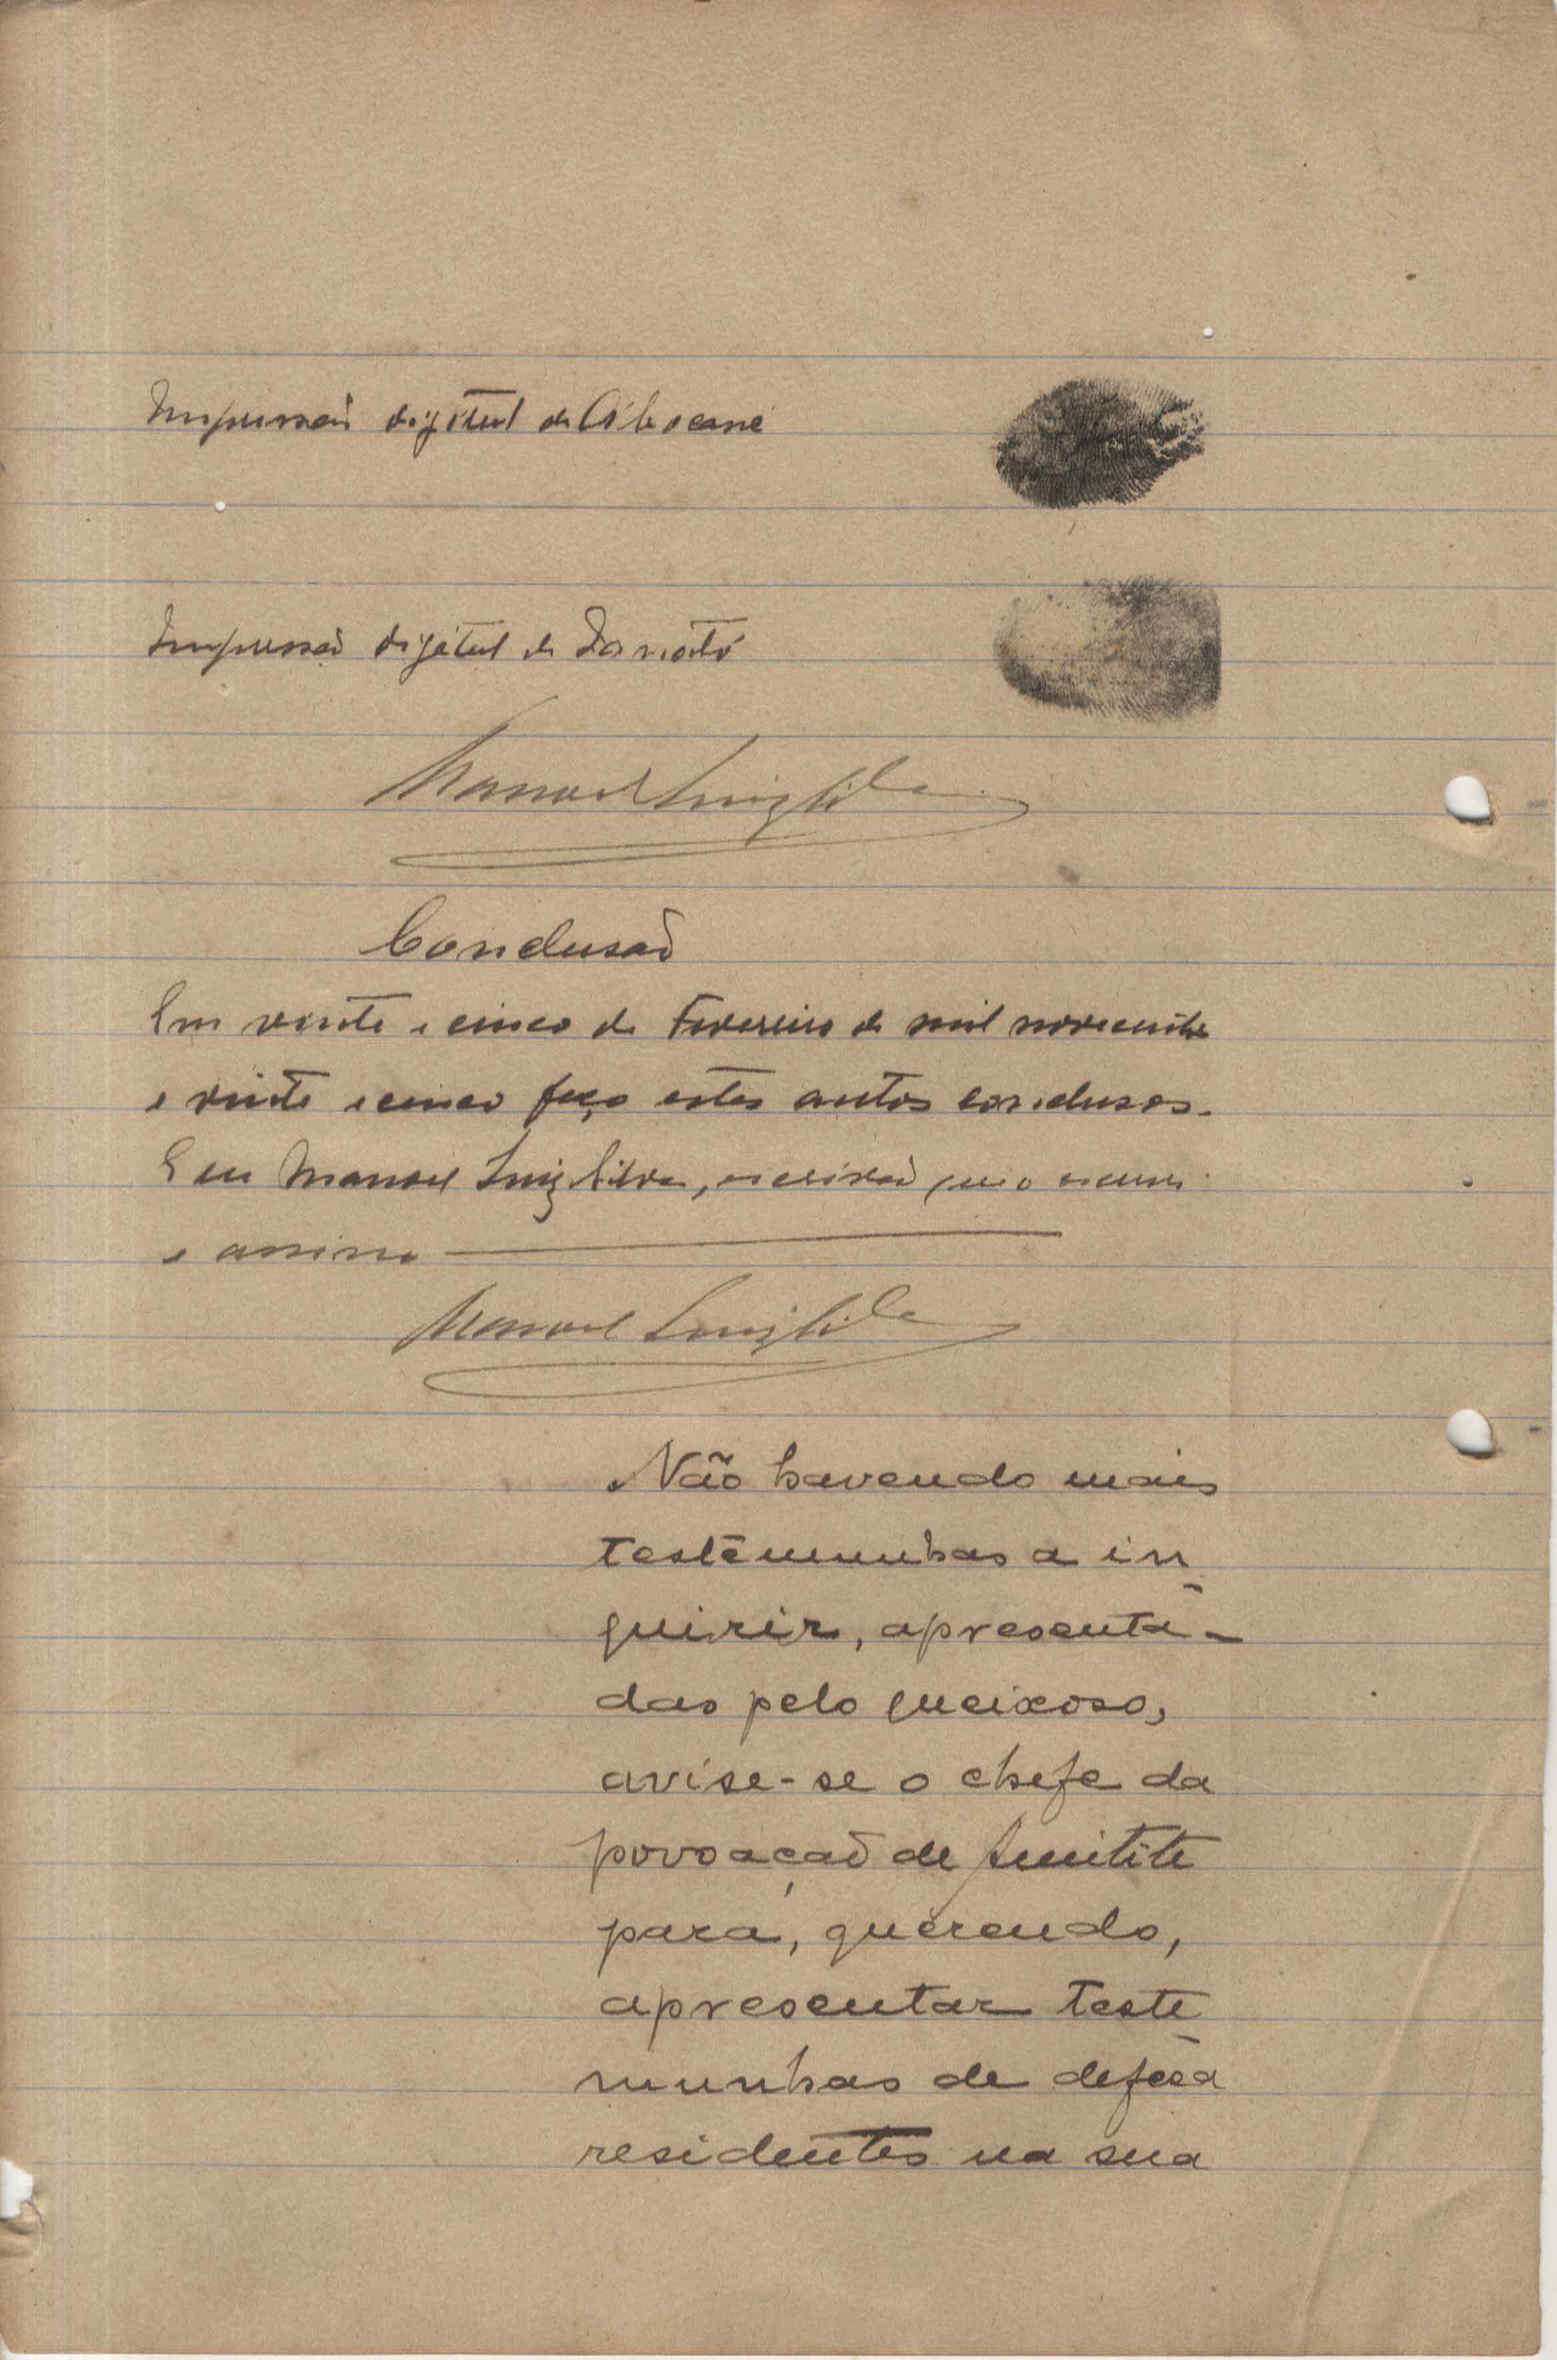 Impressão digital de
Impressão digital de
Manoel Luiz Silva
Conclusão
Em vinte e cinco de Fevereiro de mil novecentos
e vinte e cinco faço estes autos conclusos.
E eu Manoel Luiz Silva, escrivão que o escrevi
e assino
Manoel Luiz Silva
Não havendo mais
testemunhas a in-
quirir, apresenta-
das pelo queixoso,
avise-se o chefe da
povoação de
para, querendo,
apresentar teste-
munhas de defesa
residentes na sua